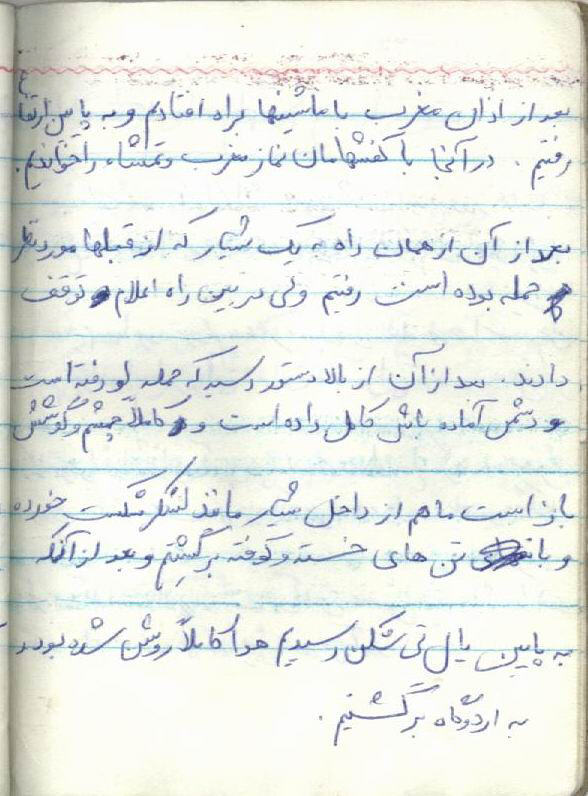 بعد از اذان مغرب با ماشینها براه افتادیم و به پایین ارتفاع
رفتیم . در آنجا با کفشهامان نماز مغرب و عشاء را خواندیم.
بعد از آن از همان راه به یک شیار که از قبلها مورد نظر
حمله بوده است رفتیم ولی در بین راه اعلام توقف
دادند . بعد از آن از بالا دستور رسید که حمله لو رفته است
و دشمن آماده باش کامل داده است و کاملاً چشم و گوشش
باز است ما هم از داخل شیار مانند لشکر شکست خورده
و با تن های خسته و کوفته برگشتیم و بعد از آنکه
به پایین یال تی شکن رسیدیم هوا کاملاً روشن شده بود و
به اردوگاه برگشتیم .